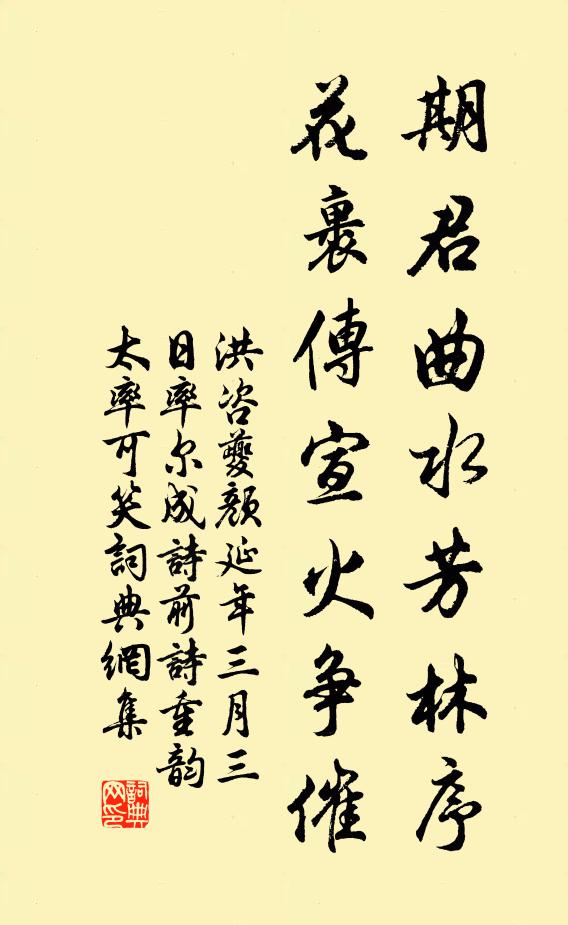 期君曲水芳林序
花裏傳宣火争催
洪咨夔顔延年三月三
日率尔成詩前詩重韵
太率可笑詞典網集
詞典
网印